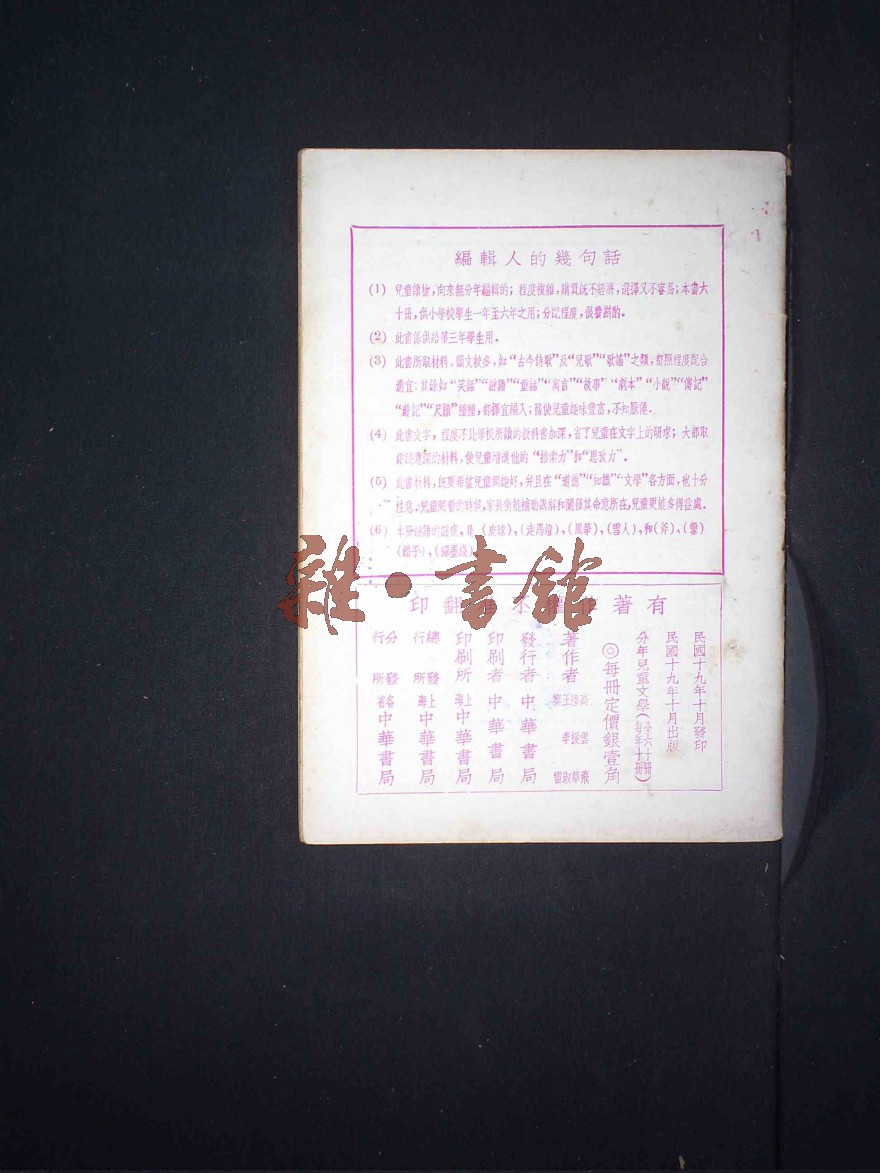 編輯人的幾句話
(1) 兒童讀物,向來無分年編輯的;程度複雜,購買旣不經濟,選擇又不容易;本書六
十冊,供小學校學生一年至六年之用;分配程度,很費斟酌。
(2) 此書係供給第三年學生用。
(3) 此書所取材料,韻文較多,如“古今詩歌”及“兒歌”“歌謠”之類,都照程度配合
適宜;其餘如“笑話”“謎語”“童話”“寓言”“故事”“劇本”“小說”“傳記”
“遊記”“尺牘”種種,都擇宜編入;務使兒童趣味豐富,不知厭倦。
(4) 此書文字,程度不比學校所讀的教科書加深,省了兒童在文字上的研求;大都取
意深的材料,使兒童增進他的“探索力”和“思考力”。
(5) 此書材料,旣要希望兒童興趣好,幷且在“道德”“知識”“文學”各方面,也十分
注意。兒童閱看的時候,家長倘能補助講解和闡發其命意所在,兒童更能多得益處。
(6) 本冊謎語的謎底,是(皮球)、(走馬燈)、(風箏)、(雪人)、和(斧)、(鑿)
雜·書館
有著作權不准翻印
民國十九年十月發印
民國十九年十月出版
分年兒童文學
◎每冊定價銀壹角
著作者
發行者 中華書局
印刷者 中華書局
印刷所 上海中華書局
總發行所 上海中華書局
分發行所 各省中華書局